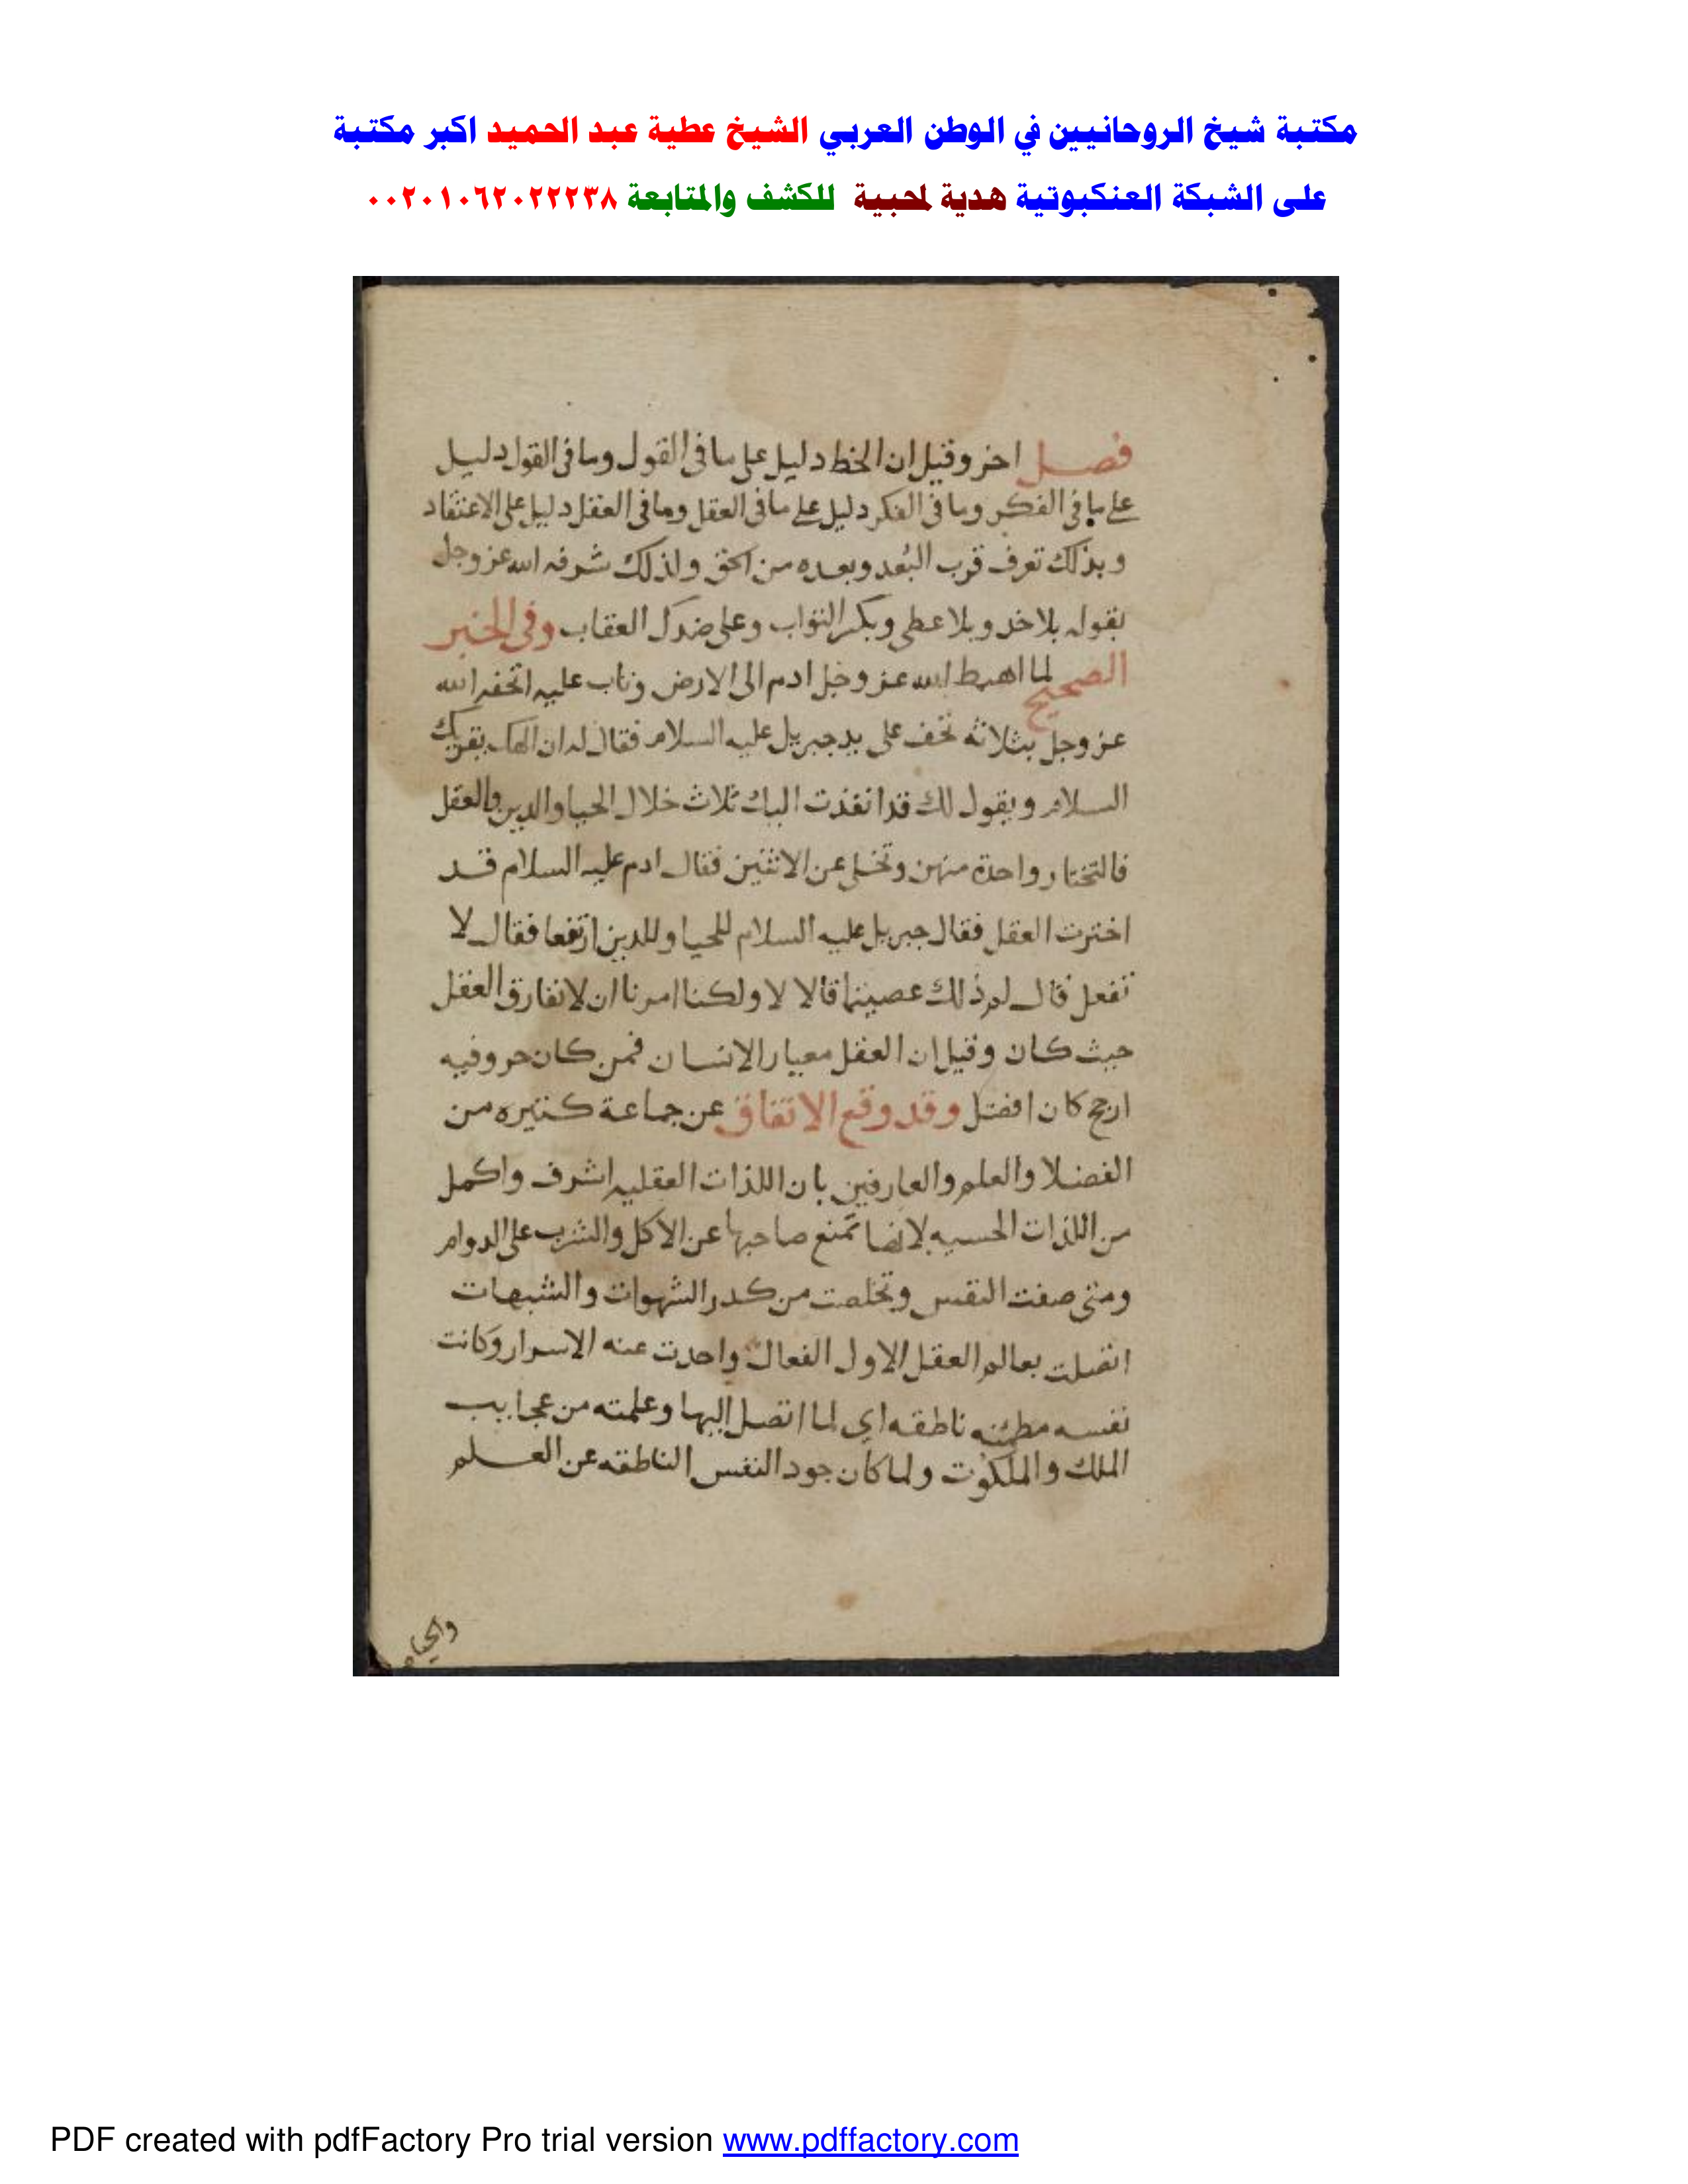 مكتبة شيخ الروحانيين في الوطن العربي الشيخ عطية عبد الحميد اكبر مكتبة
على الشبكة العنكبوتية هدية لمحبية للكشف والمتابعة ٠٠٢٠١٠٦٢٠٢٢٢٣٨
فصل اخر وقيل ان الخط دليل على ما فى القول وما فى القول دليل
على ما فى الفكر وما فى الفكر دليل على ما فى العقل وما فى العقل دليل على الاعتقاد
وبذلك تعرف قرب البُعد وبعده من الحق ولذلك شرفه الله عز وجل
بقوله بلا خد وبلا عطى وبك الثواب وعلى ضدك العقاب وفى الخبر
الصحيح لما اهبط الله عز وجل ادم الى الارض وتاب عليه اتحفه الله
عز وجل بثلاثه تحف على يد جبريل عليه السلام فقال له ان الهك يقريك
السلام ويقول لك قد انفذت اليك ثلاث خلال الحيا والدين والعقل
فالتختار واحدة منهن وتخلى عن الاثنين فقال ادم عليه السلام قد
اخترت العقل فقال جبريل عليه السلام للحيا وللدين ارتفعا فقال لا
نفعل قال لم ذلك عصيتما قالا لا ولكنا امرنا ان لا نفارق العقل
حيث كان وقيل ان العقل معيار الانسان فمن كان حروفيه
ارجح كان افضل وقد وقع الاتفاق عن جماعة كثيره من
الفضلا والعلم والعارفين بان اللذات العقليه اشرف واكمل
من اللذات الحسيه لانها تمنع صاحبها عن الاكل والشرب على الدوام
ومتى صفت النفس وتخلصت من كدر الشهوات والشبهات
اتصلت بعالم العقل الاول الفعال واخدت عنه الاسرار وكانت
نفسه مطمئنه ناطقه اى لما اتصل اليها وعلمته من عجايب
الملك والملكوت ولما كان جود النفس الناطقه عن العلم
PDF created with pdfFactory Pro trial version www.pdffactory.com